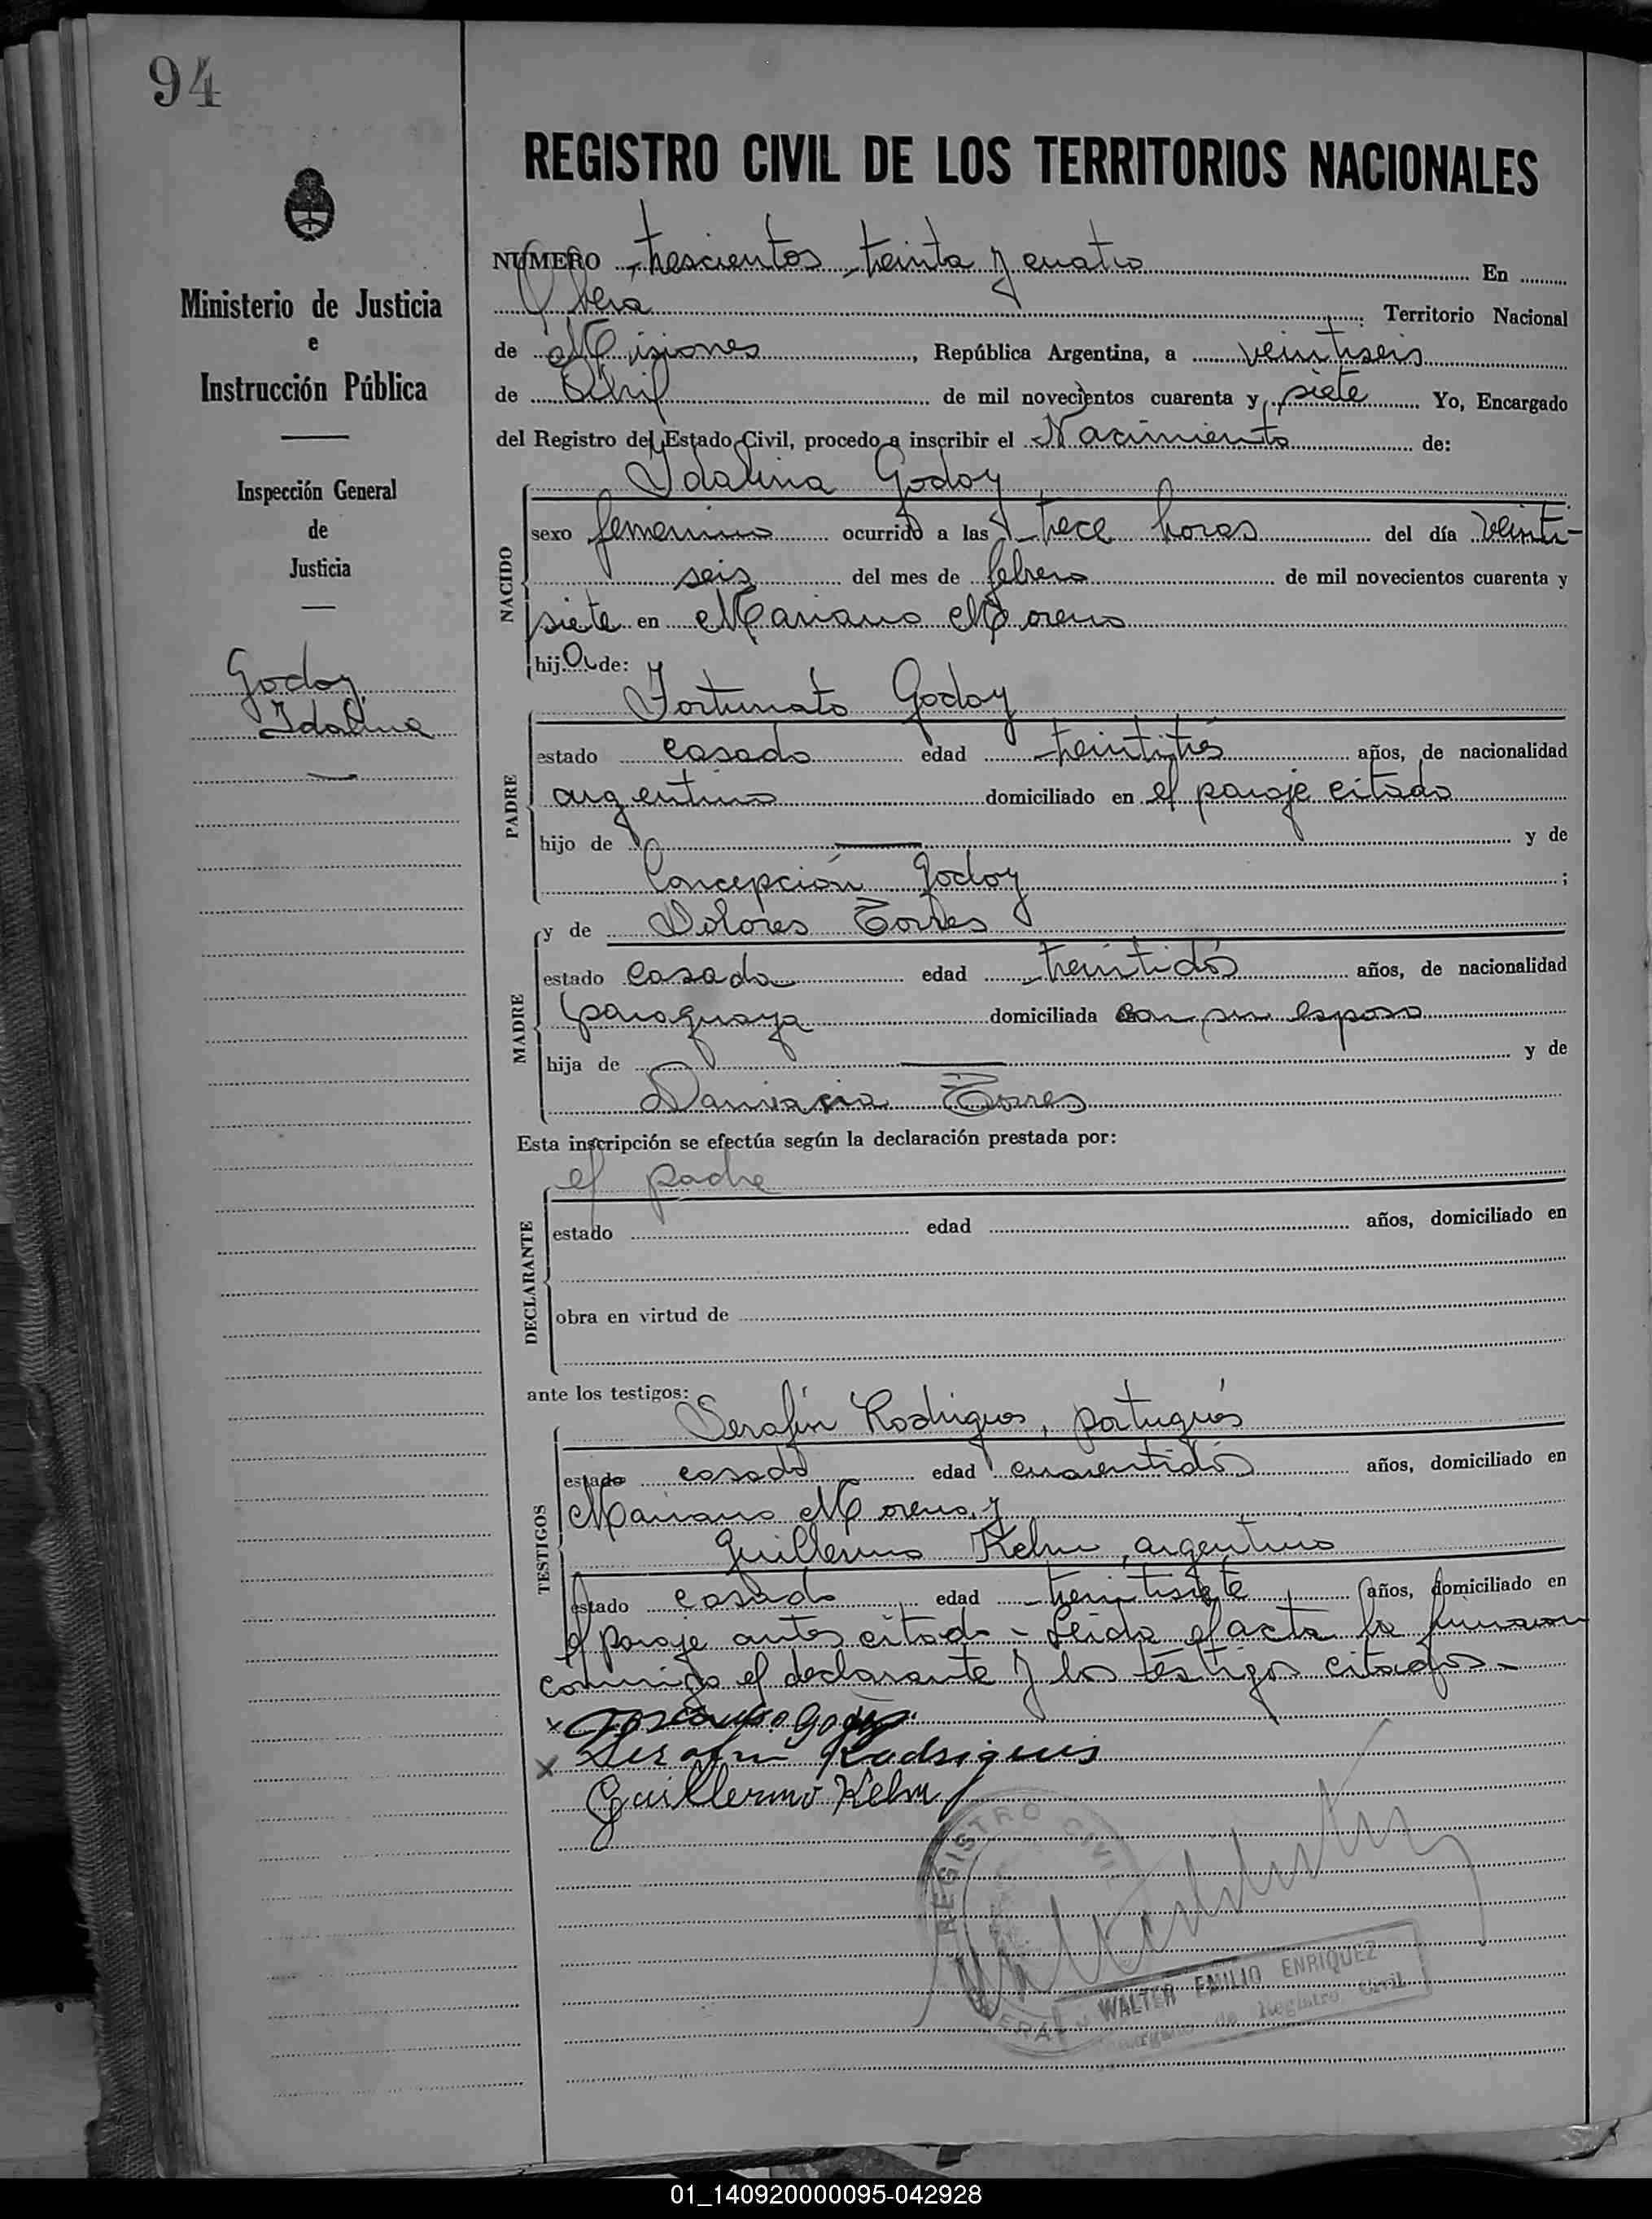 94
REGISTRO CIVIL DE LOS TERRITORIOS NACIONALES
Ministerio de Justicia
e
Instrucción Pública
Inspección General
de
Justicia
Godoy
Idalina
NUMERO trescientos treinta y cuatro En
Obera Territorio Nacional
de Misiones, República Argentina, a veintiseis
de Abril de mil novecientos cuarenta y siete Yo, Encargado
del Registro del Estado Civil, procedo a inscribir el Nacimiento de:
Idalina Godoy
NACIDO
sexo femenino ocurrido a las trece horas del día veinti-
seis del mes de febrero de mil novecientos cuarenta y
siete en Mariano Moreno
hija de:
Fortunato Godoy
PADRE
estado casado edad treintitrés años, de nacionalidad
argentino domiciliado en el paraje citado
hijo de — y de
Concepción Godoy ;
MADRE
y de Dolores Torres
estado casada edad treintidós años, de nacionalidad
paraguaya domiciliada con su esposo
hija de — y de
Torres
Esta inscripción se efectúa según la declaración prestada por:
el padre
DECLARANTE
estado edad años, domiciliado en
obra en virtud de
ante los testigos:
Serafín Rodrigues, portugués
TESTIGOS
estado casado edad cuarentidós años, domiciliado en
Mariano Moreno, y
Guillermo Kelm, argentino
estado casado edad treintisiete años, domiciliado en
el paraje antes citado - Leida el acta la firmaron
conmigo el declarante y los testigos citados.-
x Godoy
x Serafin Rodrigues
Guillermo Kelm
REGISTRO CIVIL
WALTER EMILIO ENRIQUEZ
Encargado de Registro Civil
01_140920000095-042928